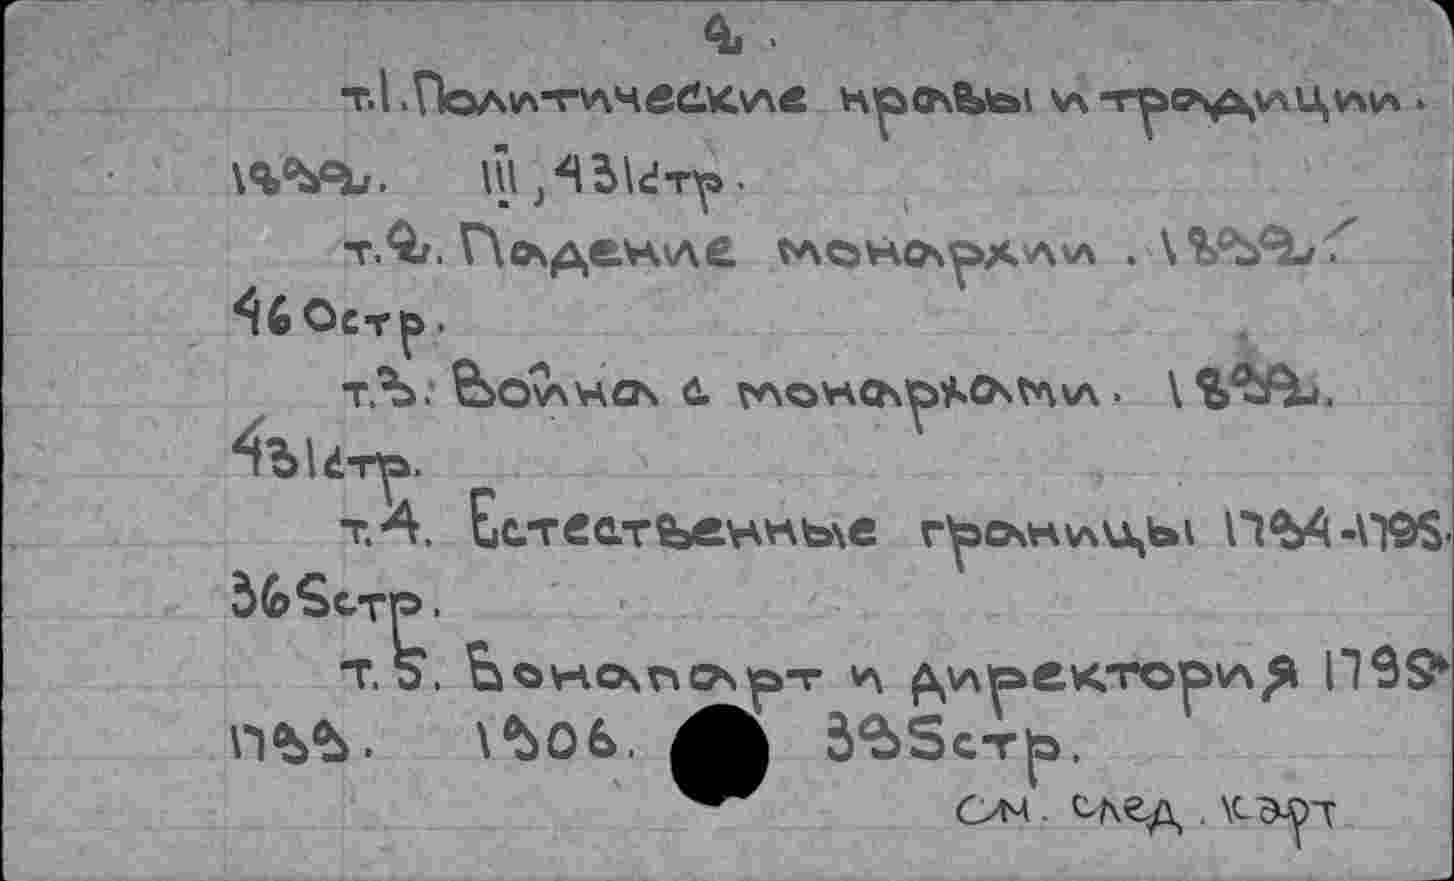 2.
т.1.Политические нравы и традиции.
1892. III,431стр.
т.2. Падение монархии. 1892.
460стр.
т.3. Война с монархами. 1892.
431стр.
т.4. Естественные границы 1794-1795.
365стр.
т.5. Бонапарт и директория 1795-
1799. 1906. 395стр.
см. след. карт